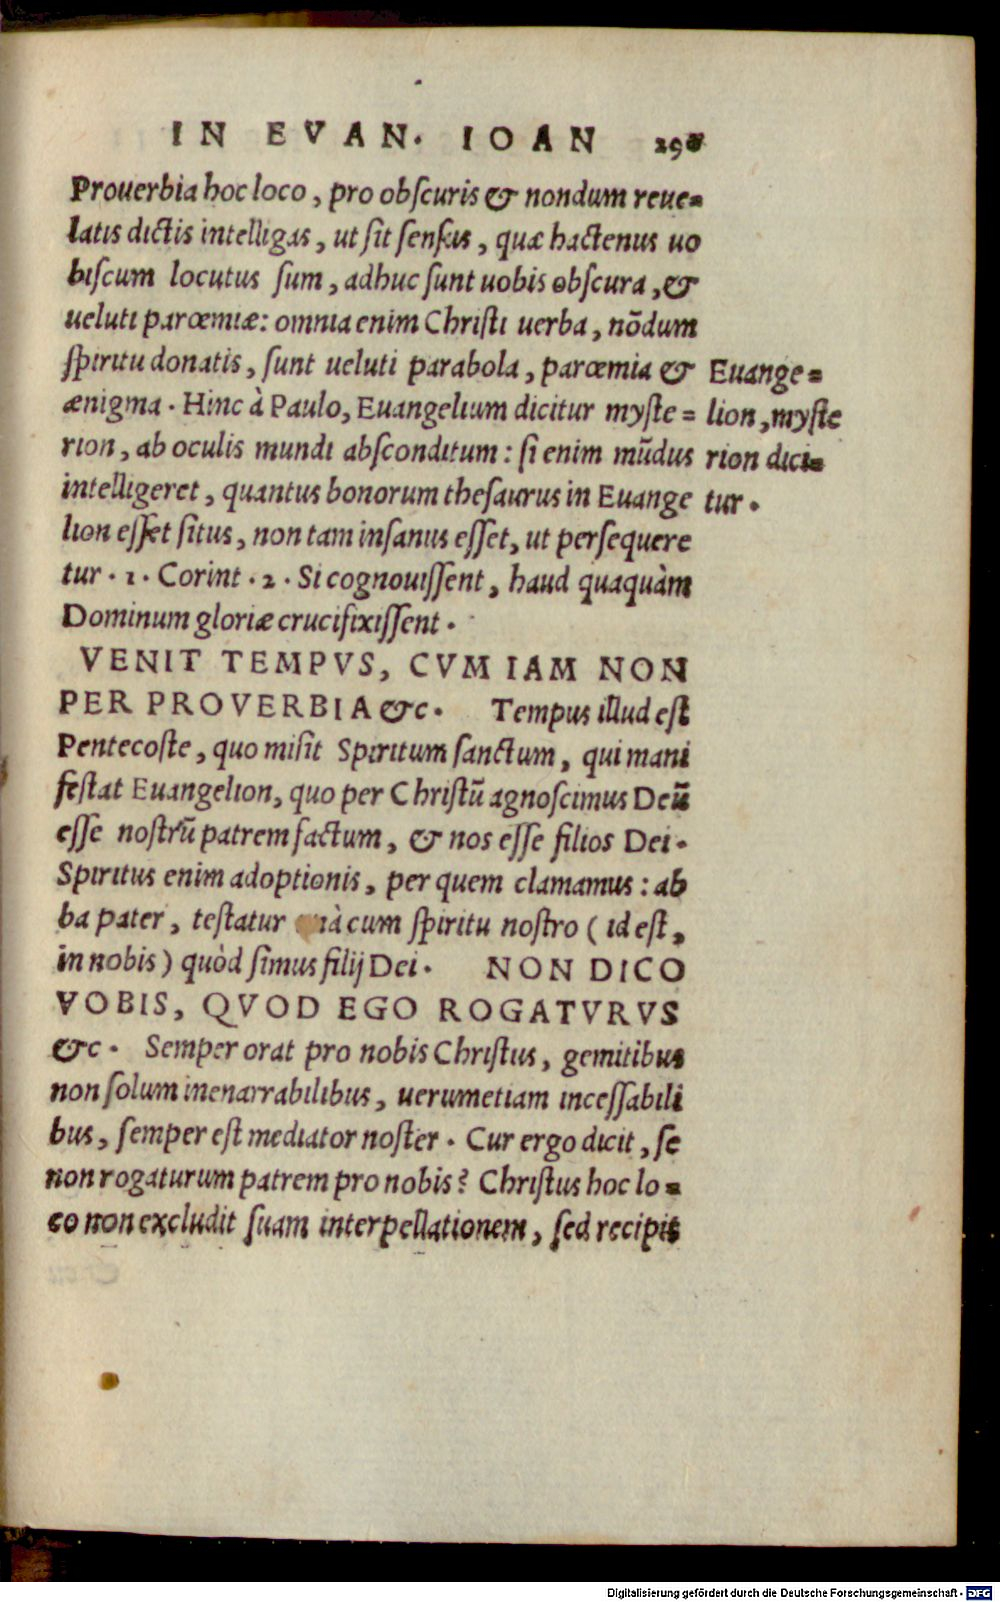 IN EVAN. IOAN
Prouerbia hoc loco, pro obſcuris & nondum reue=
latis dictis intelligas, ut ſit ſenſus, quæ hactenus uo
biſcum locutus ſum, adhuc ſunt uobis obſcura, &
ueluti parœmiæ: omnia enim Chriſti uerba, nōdum
ſpiritu donatis, ſunt ueluti parabola, parœmia &
ænigma. Hinc à Paulo, Euangelium dicitur myſte=
rion, ab oculis mundi abſconditum: ſi enim mūdus
intelligeret, quantus bonorum theſaurus in Euange
lion eſſet ſitus, non tam inſanus eſſet, ut perſequere
tur. 1. Corint. 2. Si cognouiſſent, haud quaquàm
Dominum gloriæ crucifixiſſent.
Euange=
lion, myſte
rion dici=
tur.
VENIT TEMPVS, CVM IAM NON
PER PROVERBIA &c. Tempus illud eſt
Pentecoſte, quo miſit Spiritum ſanctum, qui mani
feſtat Euangelion, quo per Chriſtū agnoſcimus Deū
eſſe noſtrū patrem factum, & nos eſſe filios Dei.
Spiritus enim adoptionis, per quem clamamus: ab
ba pater, teſtatur unà cum ſpiritu noſtro (id eſt,
in nobis) quòd ſimus filij Dei. NON DICO
VOBIS, QVOD EGO ROGATVRVS
&c. Semper orat pro nobis Chriſtus, gemitibus
non ſolum inenarrabilibus, uerumetiam inceſſabili
bus, ſemper eſt mediator noſter. Cur ergo dicit, ſe
non rogaturum patrem pro nobis? Chriſtus hoc lo=
co non excludit ſuam interpellationem, ſed recipit
Digitalisierung gefördert durch die Deutsche Forschungsgemeinschaft - DFG